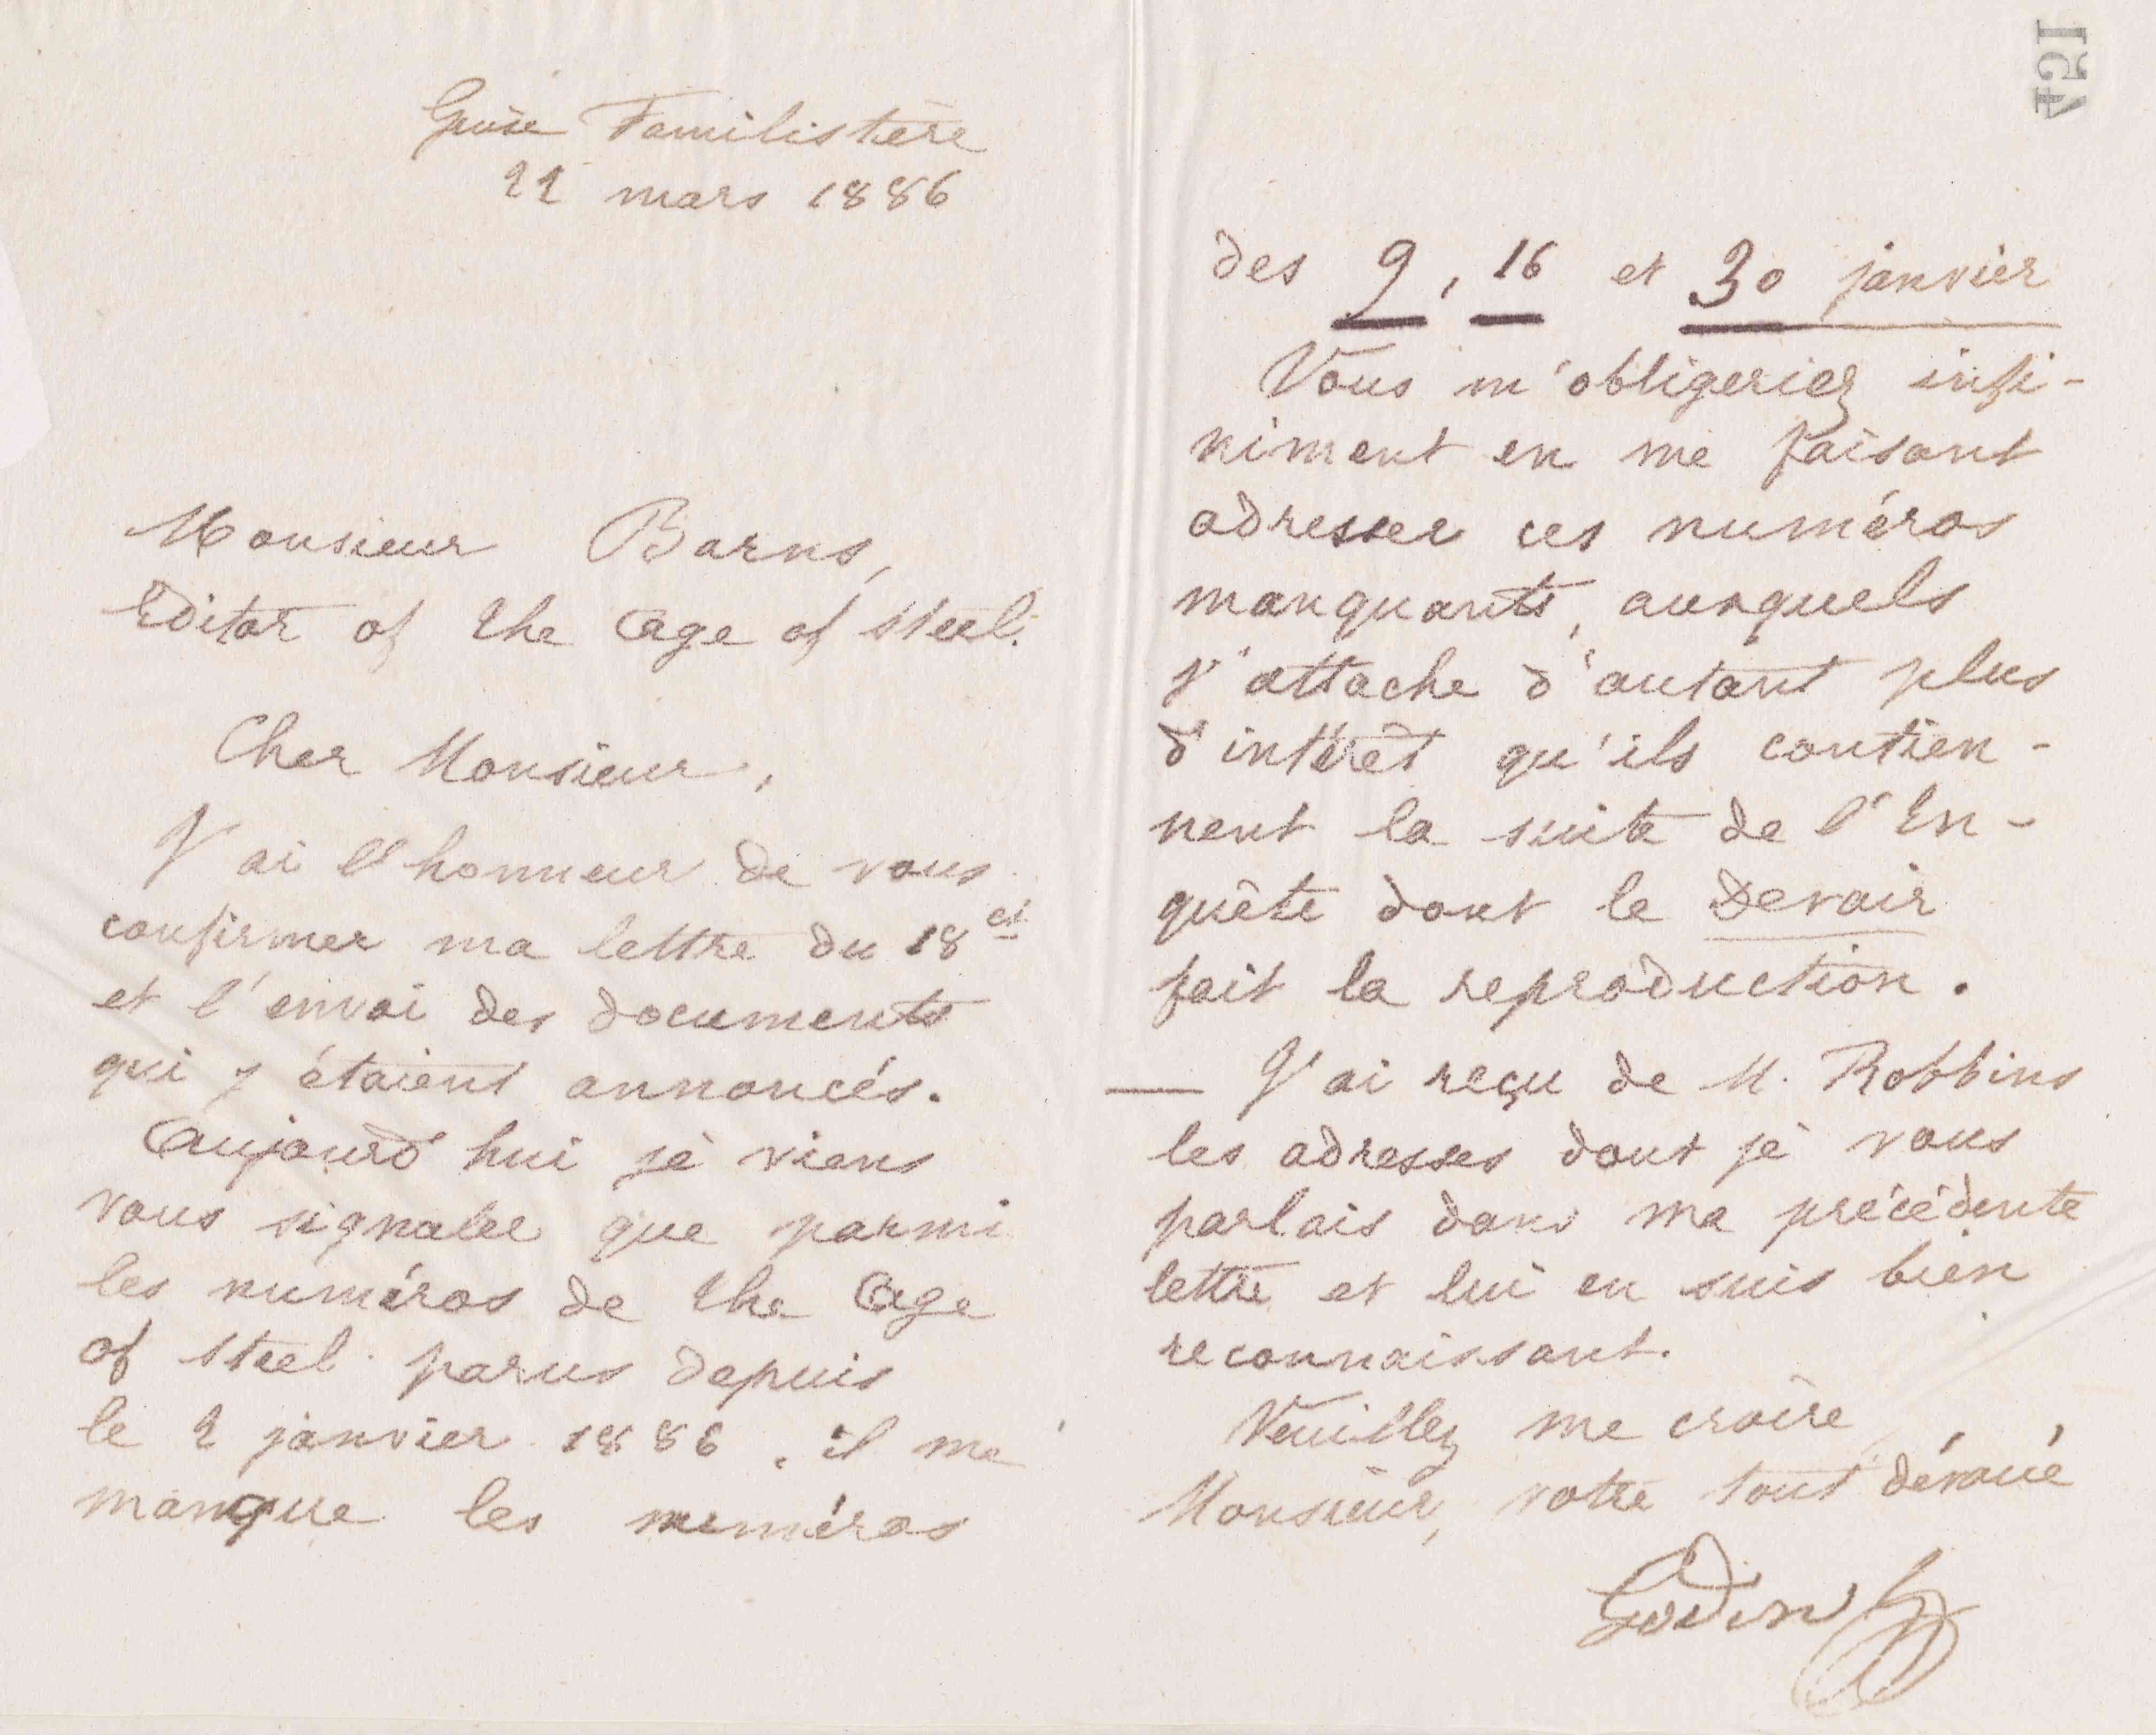 Guise Familistère
22 mars 1886
Monsieur Barns,
Editor of the Age of Steel.
Cher Monsieur,
J'ai l'honneur de vous
confirmer ma lettre du 18 ct
et l'envoi des documents
qui y étaient annoncés.
Aujourd'hui je viens
vous signaler que parmi
les numéros de the Age
of Steel parus depuis
le 2 janvier 1886, il me
manque les numéros
451
des 9, 16 et 30 janvier
Vous m'obligeriez infi-
niment en me faisant
adresser ces numéros
manquants, auxquels
j'attache d'autant plus
d'intérêt qu'ils contien-
nent la suite de l'En-
quête dont le Devoir
fait la reproduction.
— J'ai reçu de M. Robbins
les adresses dont je vous
parlais dans ma précédente
lettre et lui en suis bien
reconnaissant.
Veuillez me croire,
Monsieur, votre tout dévoué
Godin